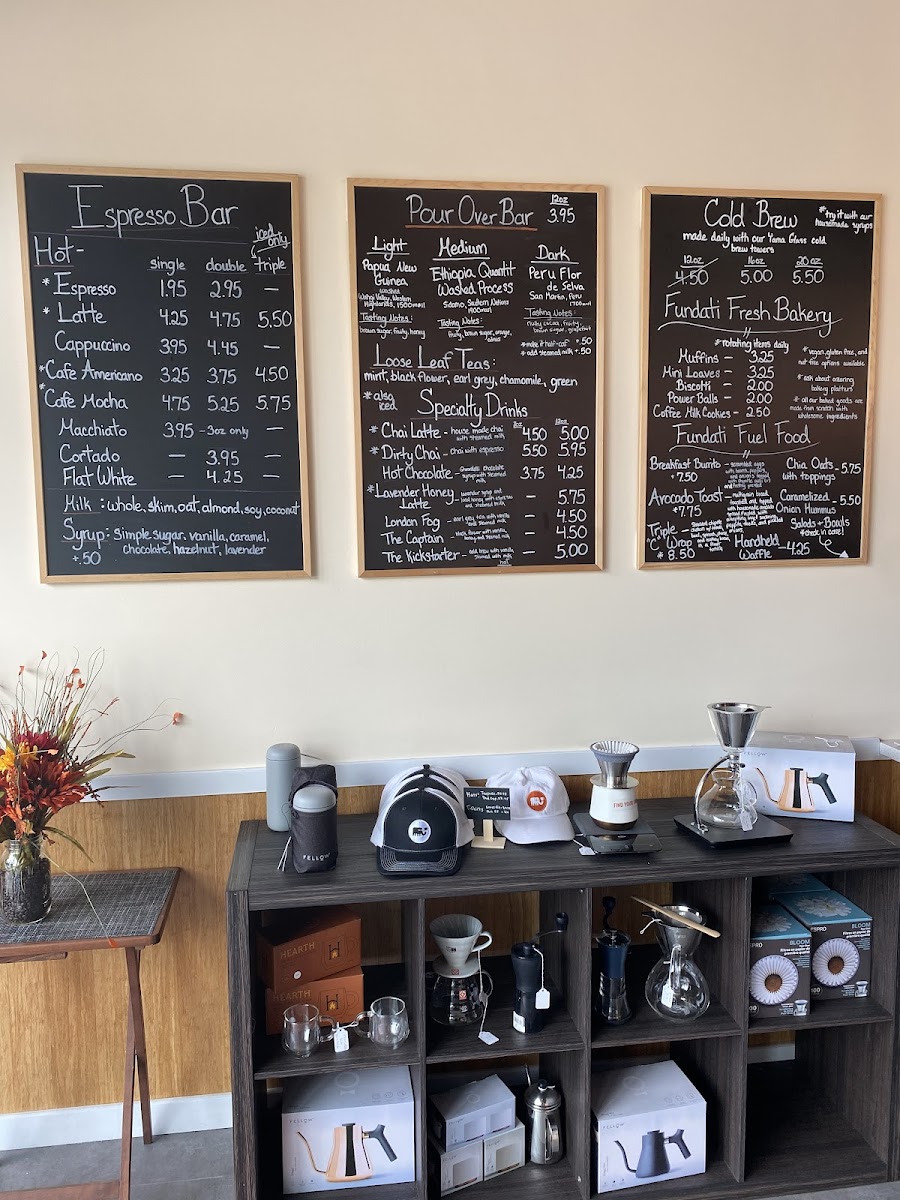 Espresso Bar
iced only
Hot-
single double triple
* Espresso 1.95 2.95 —
* Latte 4.25 4.75 5.50
Cappuccino 3.95 4.45 —
* Cafe Americano 3.25 3.75 4.50
* Cafe Mocha 4.75 5.25 5.75
Macchiato 3.95 -3oz only —
Cortado — 3.95 —
Flat White — 4.25 —
Milk : whole, skim, oat, almond, soy, coconut
Syrup: Simple sugar, vanilla, caramel,
+.50 chocolate, hazelnut, lavender
Pour Over Bar 12oz 3.95
Light
Papua New
Guinea
washed
Highlands, 1500masl
Tasting Notes:
brown sugar, fruity, honey
Medium
Ethiopia Quantit
Washed Process
Sidamo, Southern Nations
1900masl
Tasting Notes:
fruity, brown sugar, orange,
Dark
Peru Flor
de Selva
San Martin, Peru
1700masl
Tasting Notes:
fruity, cocoa, fruity,
brown sugar, grapefruit
* make it half-caf +.50
* add steamed milk +.50
Loose Leaf Teas:
mint, black flower, earl grey, chamomile, green
* also iced
Specialty Drinks
* Chai Latte - house made chai with steamed milk 4.50 5.00
* Dirty Chai - chai with espresso 5.50 5.95
Hot Chocolate - chocolate syrup with steamed milk 3.75 4.25
* Lavender Honey Latte - — 5.75
London Fog - earl grey tea with vanilla and steamed milk — 4.50
The Captain - black flower with vanilla, honey and steamed milk — 4.50
The Kickstarter - cold brew with vanilla, steamed milk — 5.00
hot
Cold Brew
* try it with our
housemade syrups
made daily with our Yama Glass cold
brew towers
12oz 16oz 20oz
4.50 5.00 5.50
Fundati Fresh Bakery
* rotating items daily
Muffins - 3.25
Mini Loaves - 3.25
Biscotti - 2.00
Power Balls - 2.00
Coffee Milk Cookies - 2.50
* vegan, gluten free, and
nut free options available
* ask about catering
bakery platters
* all our baked goods are
made from scratch with
wholesome ingredients
Fundati Fuel Food
Breakfast Burrito - scrambled eggs
* 7.50
Avocado Toast
* 7.75
Triple
"C" Wrap
* 8.50
Chia Oats - 5.75
with toppings
Caramelized - 5.50
Onion Hummus
Salads + Bowls
check in case!
Handheld - 4.25
Waffle
FELLOW
FIND YOUR
FELLOW
HEARTH
HEARTH
ESPRO
BLOOM
BLOOM
FELLOW
FELLOW